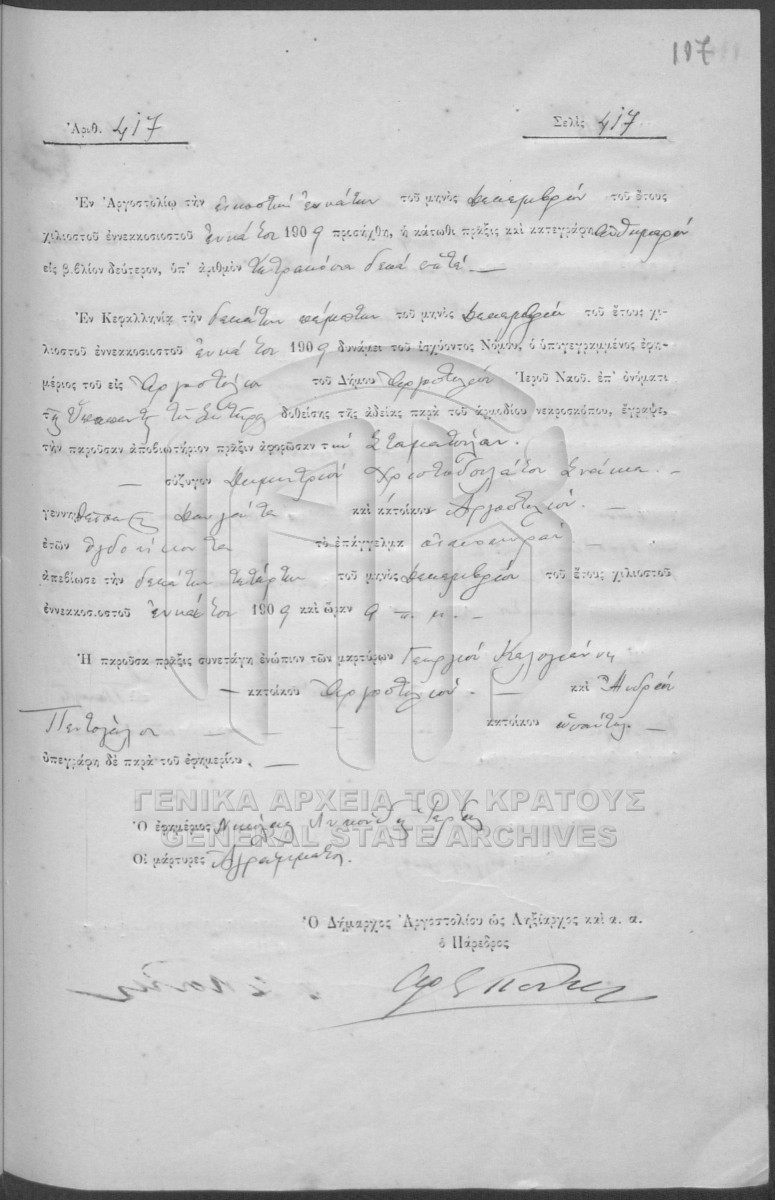 117
Ἀριθ. 417
Σελὶς 417
Ἐν Ἀργοστολίῳ τὴν εἰκοστὴν ἐννάτην τοῦ μηνὸς Δεκεμβρίου τοῦ ἔτους
χιλιοστοῦ ἐννεακοσιοστοῦ ἐννάτου 1909 προσήχθη, ἡ κάτωθι πρᾶξις καὶ κατεγράφη αὐθημερόν
εἰς β.βλίον δεύτερον, ὑπ' ἀριθμὸν τετρακόσια δεκα επτά —
Ἐν Κεφαλληνίᾳ τὴν δεκάτην πέμπτην τοῦ μηνὸς Δεκεμβρίου τοῦ ἔτους χι-
λιοστοῦ ἐννεακοσιοστοῦ ἐννάτου 1909 δυνάμει τοῦ ἰσχύοντος Νόμου, ὁ ὑπογεγραμμένος ἐφη-
μέριος τοῦ εἰς Ἀργοστόλιον τοῦ Δήμου Ἀργοστολίου Ἱεροῦ Ναοῦ. ἐπ' ὀνόματι
τῆς Ὑπαπαντῆς τοῦ Σωτῆρος δοθείσης τῆς ἀδείας παρὰ τοῦ ἁρμοδίου νεκροσκόπου, ἔγραψε,
τὴν παροῦσαν ἀποβιωτήριον πρᾶξιν ἀφορῶσαν τὴν Σταματούλαν.
— σύζυγον Δημητρίου Χριστοδουλάτου —
γεννηθεῖσα καὶ κατοίκου Ἀργοστολίου. —
ἐτῶν ὀγδοήκοντα τὸ ἐπάγγελμα οἰκοκυρά —
ἀπεβίωσε τὴν δεκάτην τετάρτην τοῦ μηνὸς Δεκεμβρίου τοῦ ἔτους χιλιοστοῦ
ἐννεακοσ.οστοῦ ἐννάτου 1909 καὶ ὥραν 9 π. μ. —
Ἡ παροῦσα πρᾶξις συνετάγη ἐνώπιον τῶν μαρτύρων Γεωργίου Καλογιάννη
— κατοίκου Ἀργοστολίου. — καὶ Ἀνδρέου
κατοίκου ὡσαύτως —
ὑπεγράφη δὲ παρὰ τοῦ ἐφημερίου. —
ΓΕΝΙΚΑ ΑΡΧΕΙΑ ΤΟΥ ΚΡΑΤΟΥΣ
Ὁ ἐφημέριος Νικόλαος
GENERAL STATE ARCHIVES
Οἱ μάρτυρες Ἀγράμματοι.
Ὁ Δήμαρχος Ἀργοστολίου ὡς Ληξίαρχος καὶ α. α.
ὁ Πάρεδρος